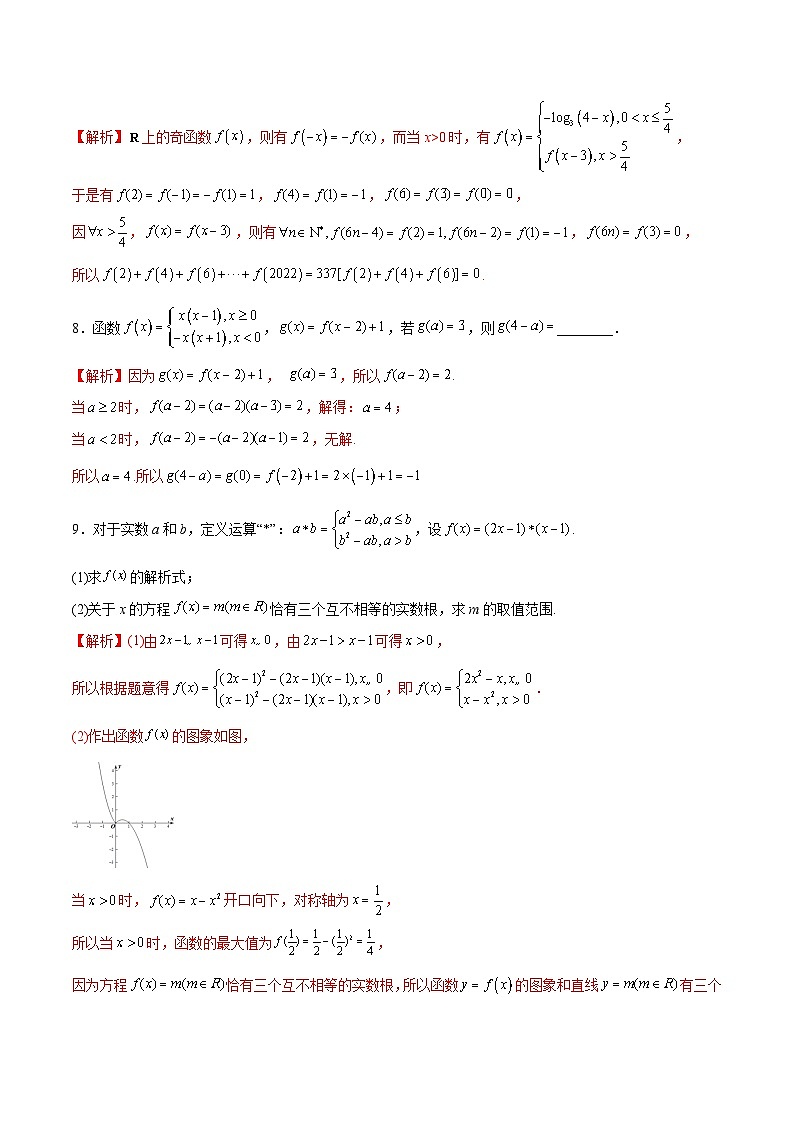 【解析】R上的奇函数 f(x),则有 f(-x)=-f(x),而当 x>0 时,有 f(x)={-log₃(4-x),0<x≤5/4; f(x-3),x>5/4,
于是有 f(2)=f(-1)=-f(1)=1,f(4)=f(1)=-1,f(6)=f(3)=f(0)=0,
因∀x>5/4,f(x)=f(x-3),则有∀n∈N*,f(6n-4)=f(2)=1,f(6n-2)=f(1)=-1,f(6n)=f(3)=0,
所以 f(2)+f(4)+f(6)+···+f(2022)=337[f(2)+f(4)+f(6)]=0.
8.函数 f(x)={x(x-1),x≥0; -x(x+1),x<0,g(x)=f(x-2)+1,若 g(a)=3,则 g(4-a)=________.
【解析】因为 g(x)=f(x-2)+1, g(a)=3,所以 f(a-2)=2.
当 a≥2 时,f(a-2)=(a-2)(a-3)=2,解得:a=4;
当 a<2 时,f(a-2)=-(a-2)(a-1)=2,无解.
所以 a=4.所以 g(4-a)=g(0)=f(-2)+1=2×(-1)+1=-1
9.对于实数 a 和 b,定义运算“*”:a*b={a²-ab,a≤b; b²-ab,a>b,设 f(x)=(2x-1)*(x-1).
(1)求 f(x) 的解析式;
(2)关于 x 的方程 f(x)=m(m∈R) 恰有三个互不相等的实数根,求 m 的取值范围.
【解析】(1)由 2x-1,, x-1 可得 x,, 0,由 2x-1>x-1 可得 x>0,
所以根据题意得 f(x)={(2x-1)²-(2x-1)(x-1),x,, 0; (x-1)²-(2x-1)(x-1),x>0,即 f(x)={2x²-x,x,, 0; x-x²,x>0.
(2)作出函数 f(x) 的图象如图,
当 x>0 时,f(x)=x-x² 开口向下,对称轴为 x=1/2,
所以当 x>0 时,函数的最大值为 f(1/2)=1/2-(1/2)²=1/4,
因为方程 f(x)=m(m∈R) 恰有三个互不相等的实数根,所以函数 y=f(x) 的图象和直线 y=m(m∈R) 有三个